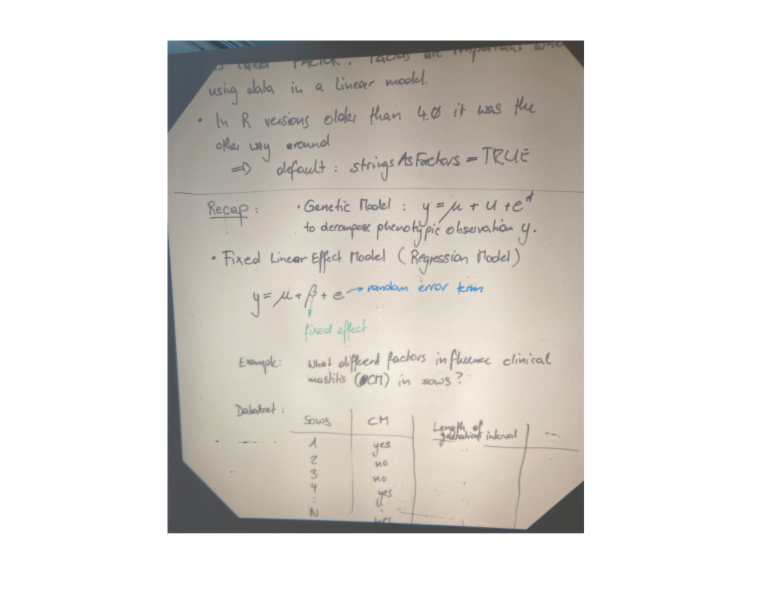 is called FACTOR. Factors are important when
using data in a linear model.
• In R versions older than 4.0 it was the
other way around
⇒ default: stringsAsFactors = TRUE
Recap: • Genetic Model: y = μ + u + e*
to decompose phenotypic observation y.
• Fixed Linear Effect Model (Regression Model)
y = μ + β + e → random error term
fixed effect
Example: What different factors influence clinical
mastitis (CM) in sows?
Dataset:
Sows CM Length of
gestation interval ...
1 yes
2 no
3 no
4 yes
: :
N yes